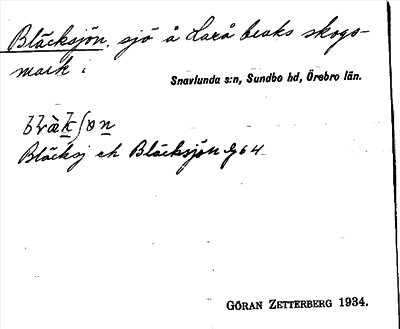 Bläcksjön, sjö å Harå beaks skogs-
mark i
Snavlunda s:n, Sundbo hd, Örebro län.
Bläcksj ek Bläcksjön G64
GÖRAN ZETTERBERG 1934.